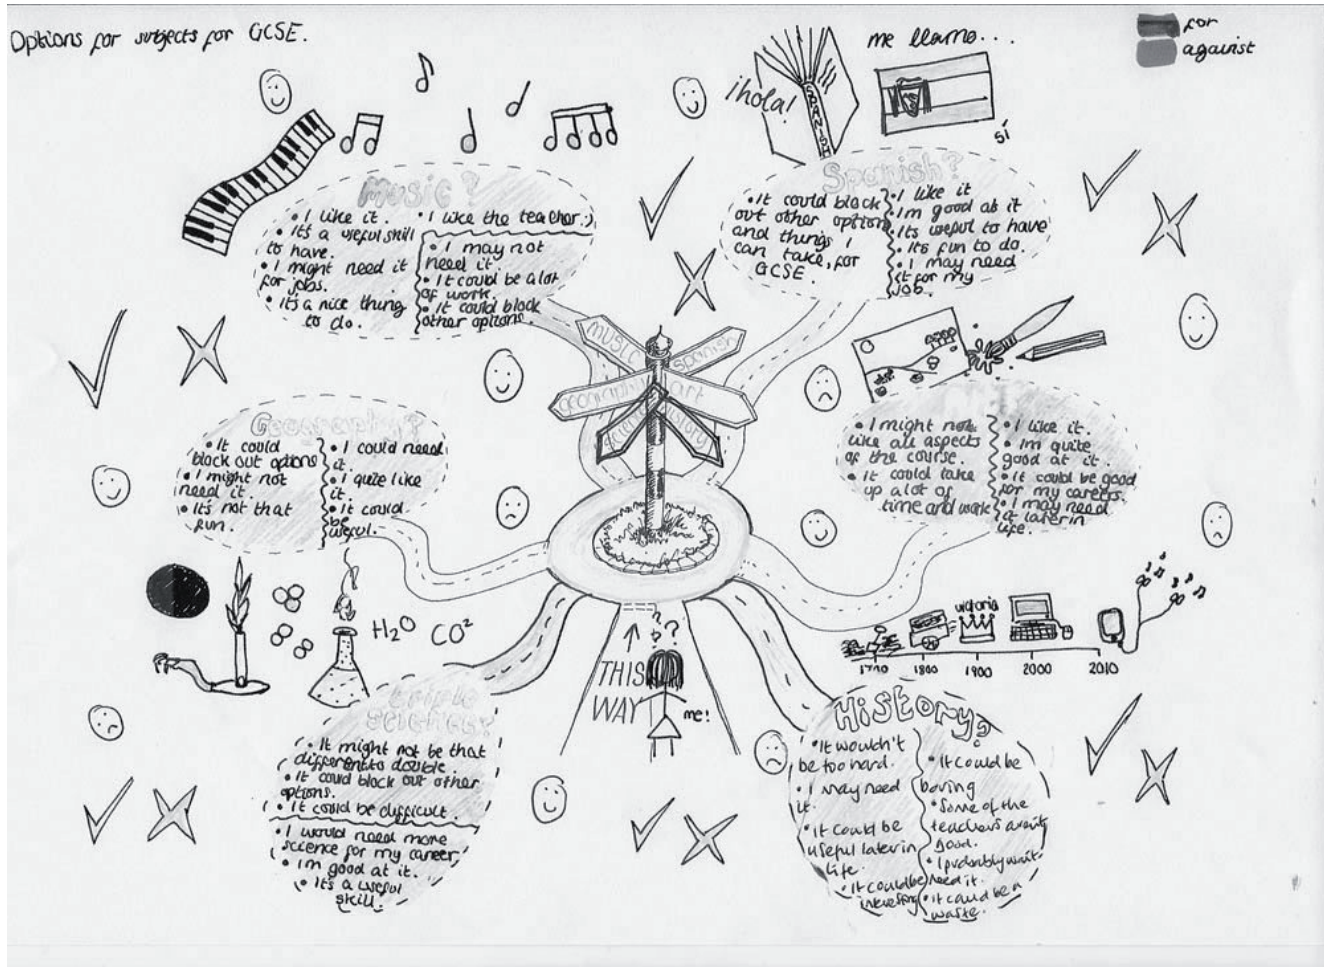 Options for subjects for GCSE.
for
against
Music?
• I like it.
• It's a useful skill
to have.
• I might need it
for jobs.
• It's a nice thing
to do.
• I like the teacher :)
• I may not
need it.
• It could be a lot
of work.
• It could block
other options.
¡hola!
SPANISH
me llamo...
sí
Spanish?
• It could block
out other options
and things I
can take, for
GCSE.
• I like it
• Im good at it
• Its useful to have
• Its fun to do.
• I may need
it for my
job.
music
spanish
geography
art
science
history
Geography?
• It could
block out options
• I might not
need it.
• It's not that
fun.
• I could need
it.
• I quite like
it.
• It could
be
useful.
Art?
• I might not
like all aspects
of the course.
• It could take
up a lot of
time and work
• I like it.
• Im quite
good at it.
• It could be good
for my careers.
• I may need
it later in
life.
H2O
CO²
Triple
Science?
• It might not be that
different to double.
• It could block out other
options.
• It could be difficult.
• I would need more
science for my career
• Im good at it.
• It's a useful
skill.
? ? ?
THIS
WAY
me!
victoria
1700
1800
1900
2000
2010
History?
• It wouldn't
be too hard.
• I may need
it.
• It could be
useful later in
life.
• It could be
interesting
• It could be
boring
• Some of the
teachers arent
good.
• I probably wont
need it.
• It could be a
waste.